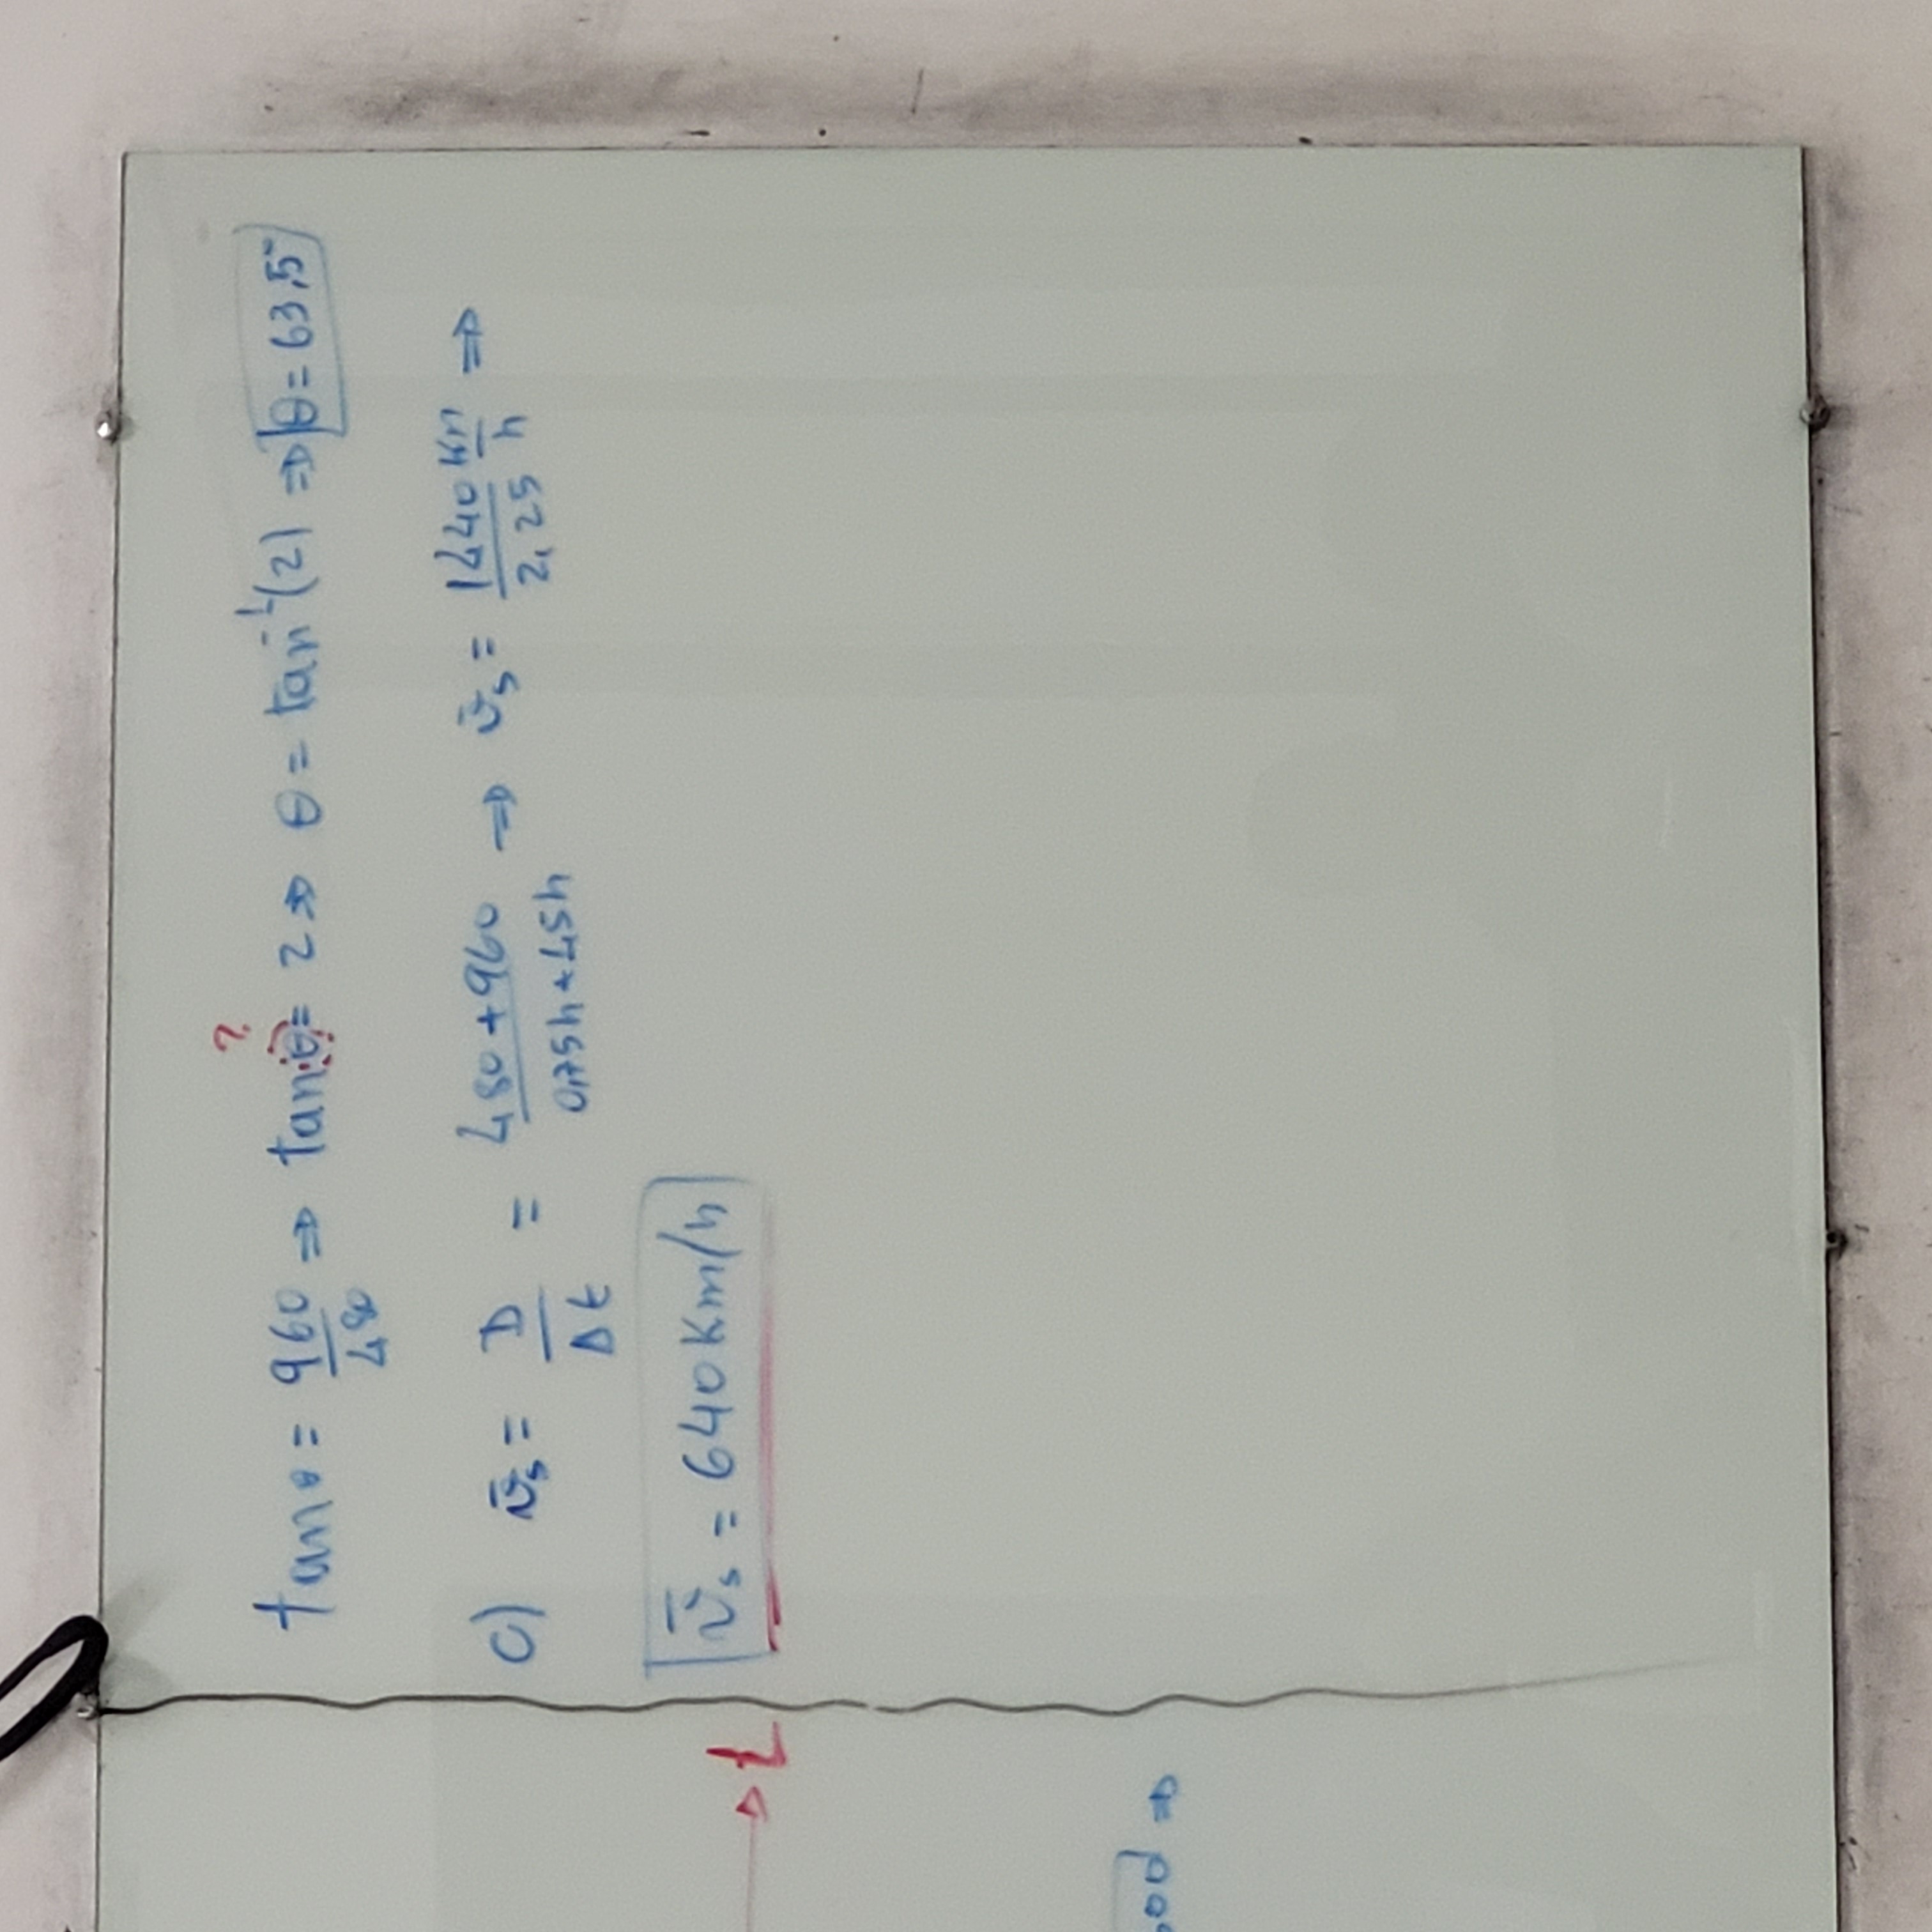 tanθ = 960/480 ⇒ tanθ = 2 ⇒ θ = tan⁻¹(2) ⇒ θ = 63,5
?
c) v̄s = D/Δt = 480+960 / 0,75h+1,5h ⇒ v̄s = 1440 / 2,25 km/h ⇒
v̄s = 640 Km/h